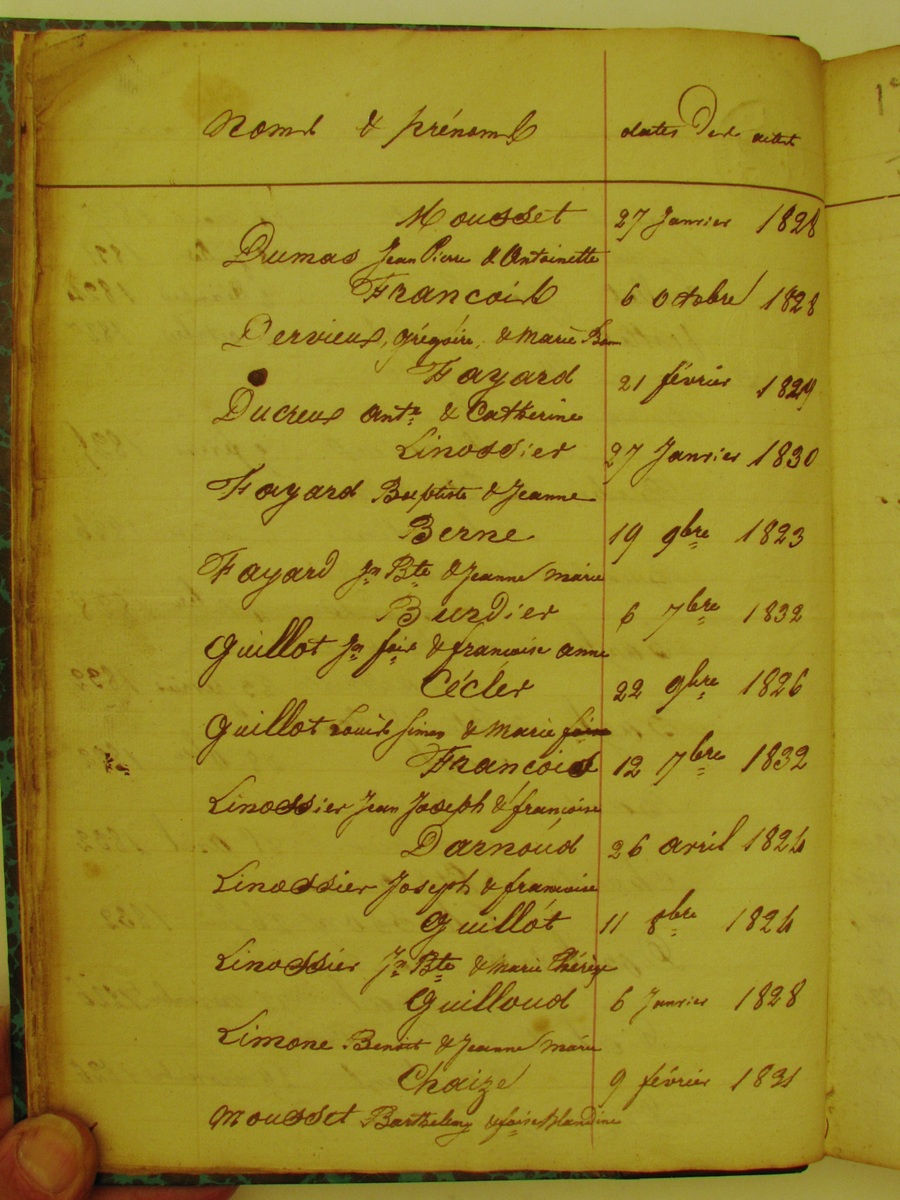 Noms & prénoms dates des actes
Mousset 27 Janvier 1828
Dumas Jean Pierre & Antoinette
Francois 6 octobre 1828
Dervieux, grégoire, & marie
Fayard 21 février 1829
Ducreux Ante & Catherine
Linossier 27 Janvier 1830
Fayard Baptiste & Jeanne
Berne 19 9bre 1823
Fayard Jn Bte & Jeanne marie
Burdier 6 7bre 1832
Guillot Jn fois & françoise anne
Cécler 22 9bre 1826
Guillot Louis simon & marie
Francois 12 7bre 1832
Linossier Jean Joseph & françoise
Darnoud 26 avril 1824
Linossier Joseph & francoise
Guillot 11 8bre 1824
Linossier Jn Bte & marie Thérèze
Guilloud 6 Janvier 1828
Limone Benoit & Jeanne marie
Chaize 9 février 1831
Mousset Barthelemy & foise Blandine